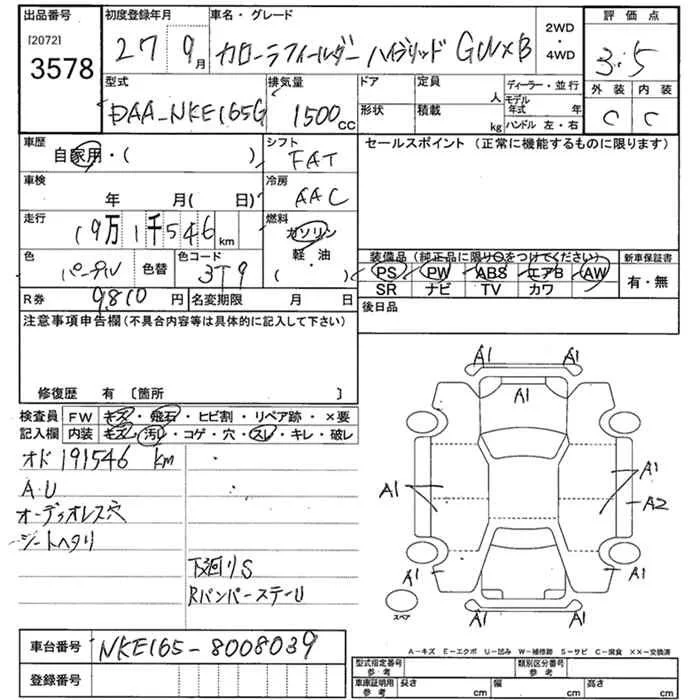 出品番号 初度登録年月 車名・グレード 2WD ・ 4WD 評価点
[2072]
3578
27 9月 カローラフィールダー ハイブリッド G WxB 3.5
型式 排気量 ドア 定員 人 ディーラー・並行 外装 内装
DAA-NKE165G 1500cc 形状 積載 kg モデル年式 年 C C
ハンドル 左・右
車歴 シフト セールスポイント (正常に機能するものに限ります)
自家用・( ) FAT
車検 冷房
年 月( 日) AAC
走行 燃料
19万1千546km ガソリン
色 色替 色コード 軽・油
パール 3T9 ( )
装備品(純正品に限り○をつけてください) 新車保証書
PS PW ABS エアB AW 有・無
SR ナビ TV カワ
R券 9810円 名変期限 月 日 後日品
注意事項申告欄(不具合内容等は具体的に記入して下さい)
修復歴 有 〔箇所 〕
検査員 FW キズ・飛石・ヒビ割・リペア跡・×要
記入欄 内装 キズ・汚レ・コゲ・穴・スレ・キレ・破レ
オド191546km
A.U
オーディオレス穴
シートヘタリ
下廻りS
RバンパーステーU
A1 A1
A1
A1 A1
A2
A1 A1
スペア
A1 A1
A-キズ E-エクボ U-凹み W-補修跡 S-サビ C-腐食 XX-交換済
車台番号 NKE165-8008039
登録番号
型式指定番号 参考 類別区分番号 参考
車庫証明用 参考 長さ cm 幅 cm 高さ cm